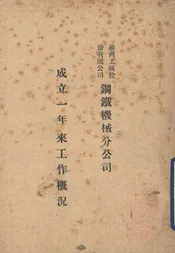 臺灣工礦股
份有限公司
鋼鐵機械分公司
成立一年來工作概況